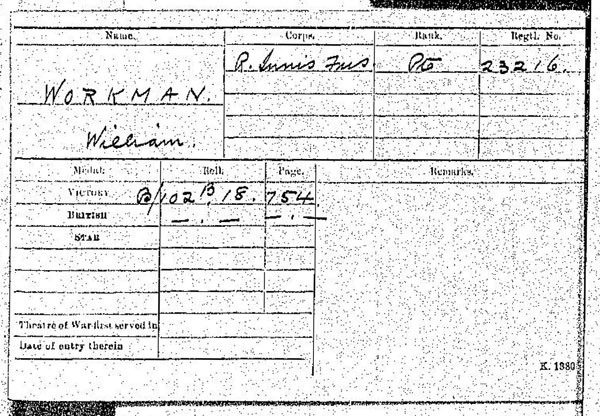 Name. Corps. Rank. Regtl. No.
R. Innis Fus Pte 23216.
WORKMAN.
William.
Medal. Roll. Page. Remarks.
VICTORY B/102 B. 18. 754
BRITISH — . — — . —
STAR
Theatre of War first served in
Date of entry therein
K. 1380